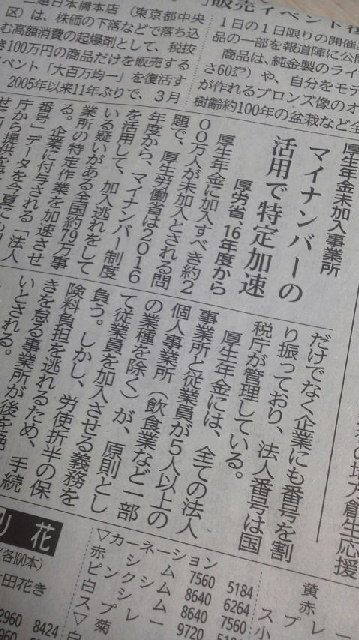 販売イベント
越日本橋本店(東京都中央
区)は、株価の下落などで落ち込
む高額消費の起爆剤として、税抜
き100万円の商品だけを販売する
ベント「大百万均一」を復活す
2005年以来11年ぶりで、3月
1日の1日限りの開催
品の一部を報道陣に公開
商品は、純金製のライ
さ60㌢)や、自分をモデ
が作れるブロンズ像のオ
樹齢約100年の盆栽など
厚生年金未加入事業所
マイナンバーの
活用で特定加速
厚労省 16年度から
厚生年金に加入すべき約2
00万人が未加入とされる問
題で、厚生労働省は2016
年度から、マイナンバー制度
を活用して、加入逃れをして
いる疑いがある全国約79万事
業所の特定作業を加速させ
る。企業に付与される「法人
番号」データを今夏にも
だけでなく企業にも番号を割
り振っており、法人番号は国
税庁が管理している。
厚生年金には、全ての法人
事業所と従業員が5人以上の
個人事業所(飲食業など一部
の業種を除く)が、原則とし
て従業員を加入させる義務を
負う。しかし、労使折半の保
険料負担を逃れるため、手続
きを怠る事業所が後を絶
いとされる。
花
カーネーション
7560 5184
8640 6264
8640 7560